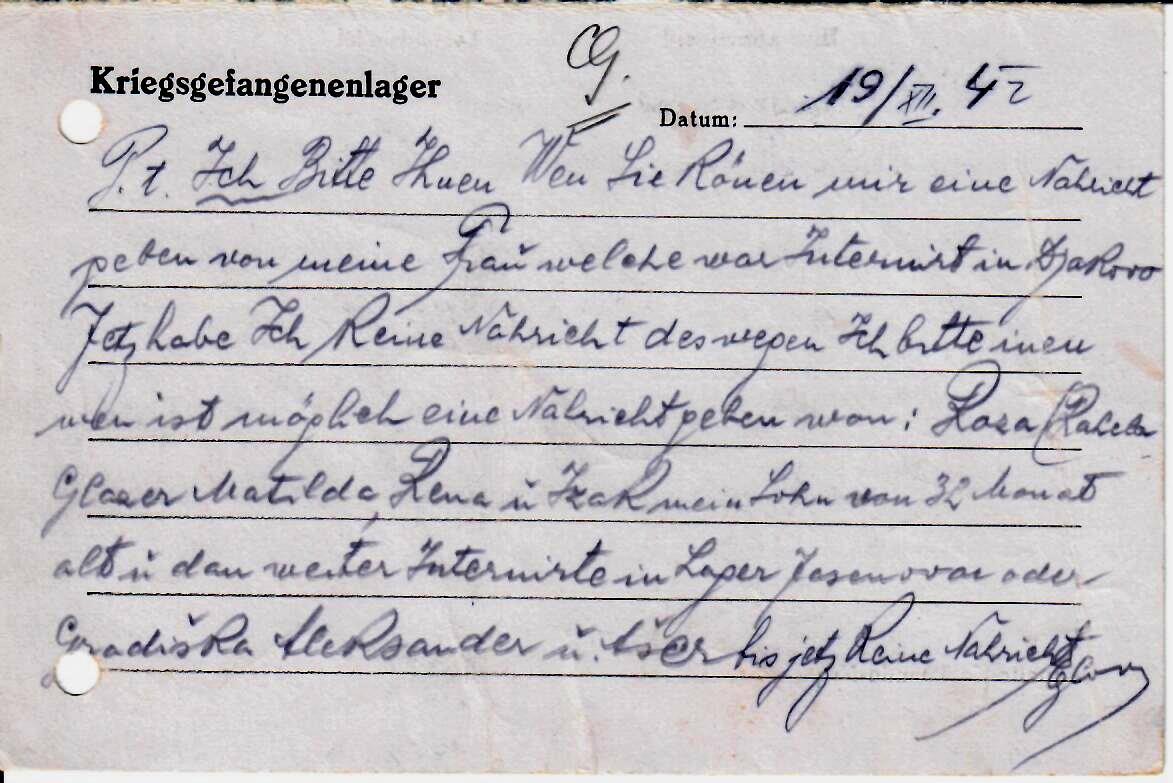 CG.
Kriegsgefangenenlager
Datum: 19/XII. 42
P.t. Ich Bitte Ihnen Wen Sie Könen mir eine Nahricht
geben von meine Frau welche war Internirt in Djakovo
Jetz habe Ich Keine Nahricht deswegen Ich bitte inen
wen ist möglich eine Nahricht geben von: Roza (Rahela
Glazer Matilda, Rena u Izak mein Sohn von 32 Monat
alt u dan weiter Internirte in Lager Jasenovac oder
Gradiška Aleksander u. Ašer bis jetz Keine Nahricht